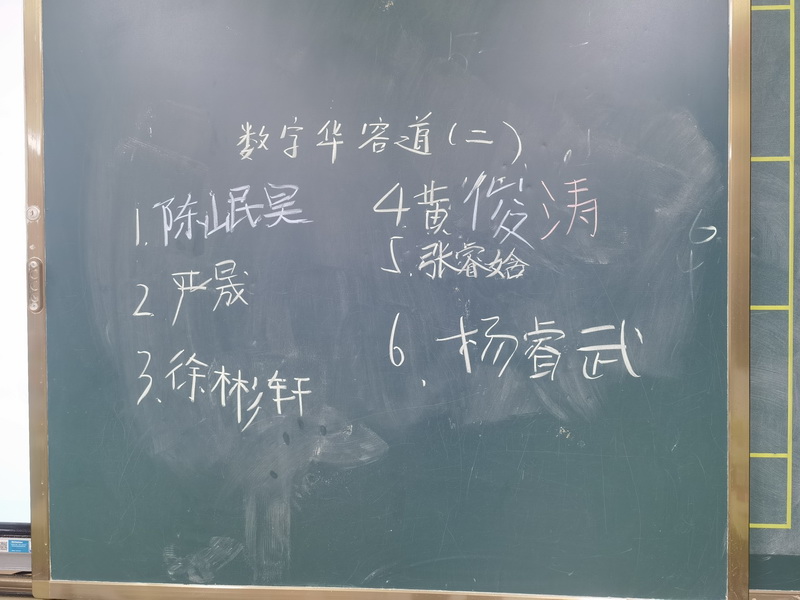 数字华容道(二)
1.陈岷昊
2 严晟
3、徐彬轩
4黄俊涛
5.张睿姶
6.杨睿武